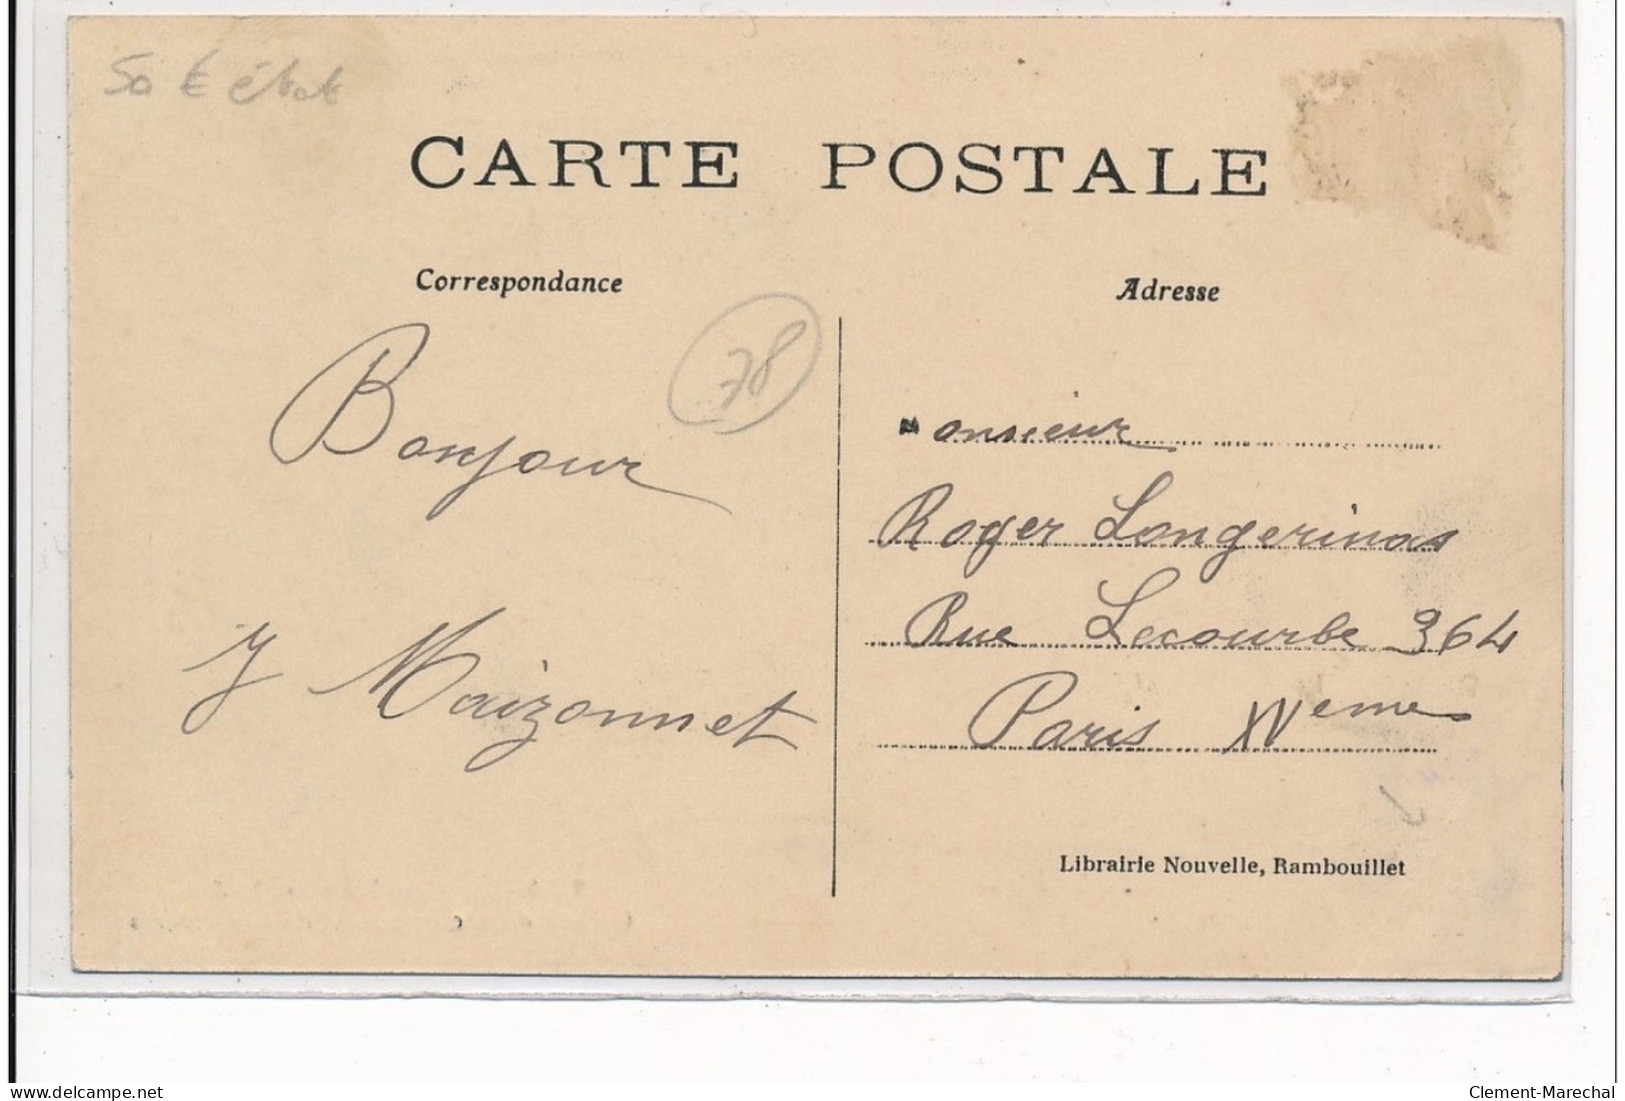 50 € état
CARTE POSTALE
Correspondance
Adresse
78
Bonjour
J Maizonnet
Monsieur
Roger Longerinas
Rue Lecourbe 364
Paris XVeme
Librairie Nouvelle, Rambouillet
www.delcampe.net
Clement-Marechal